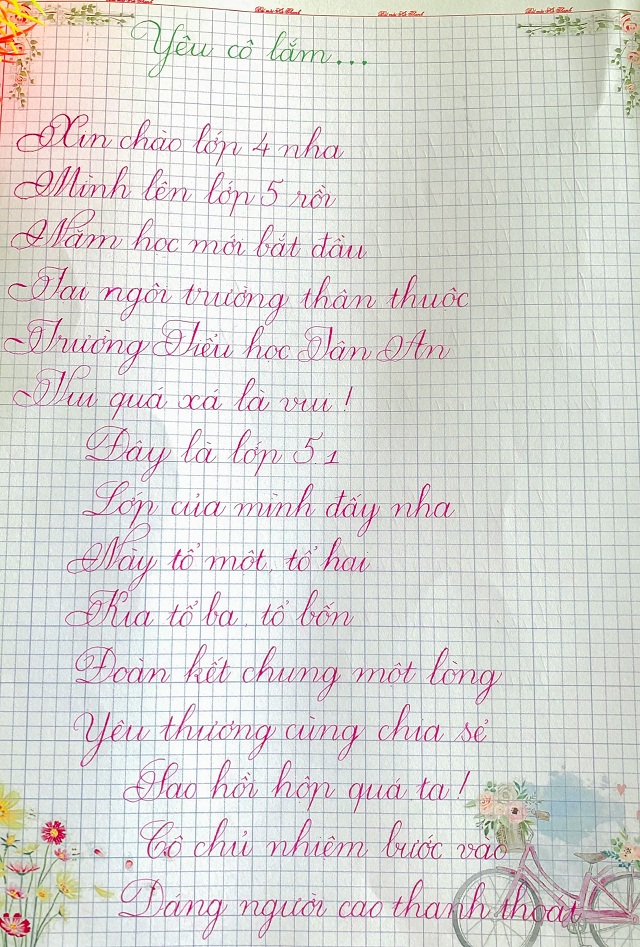 Yêu cô lắm...
Xin chào lớp 4 nha
Mình lên lớp 5 rồi
Năm học mới bắt đầu
Tại ngôi trường thân thuộc
Trường Tiểu học Tân An
Vui quá xá là vui!
Đây là lớp 5.1
Lớp của mình đấy nha
Này tổ một, tổ hai
Kia tổ ba, tổ bốn
Đoàn kết chung một lòng
Yêu thương cùng chia sẻ
Sao hồi hộp quá ta!
Cô chủ nhiệm bước vào
Dáng người cao thanh thoát